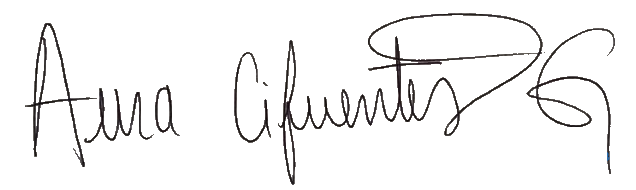 Aura Cifuentes G